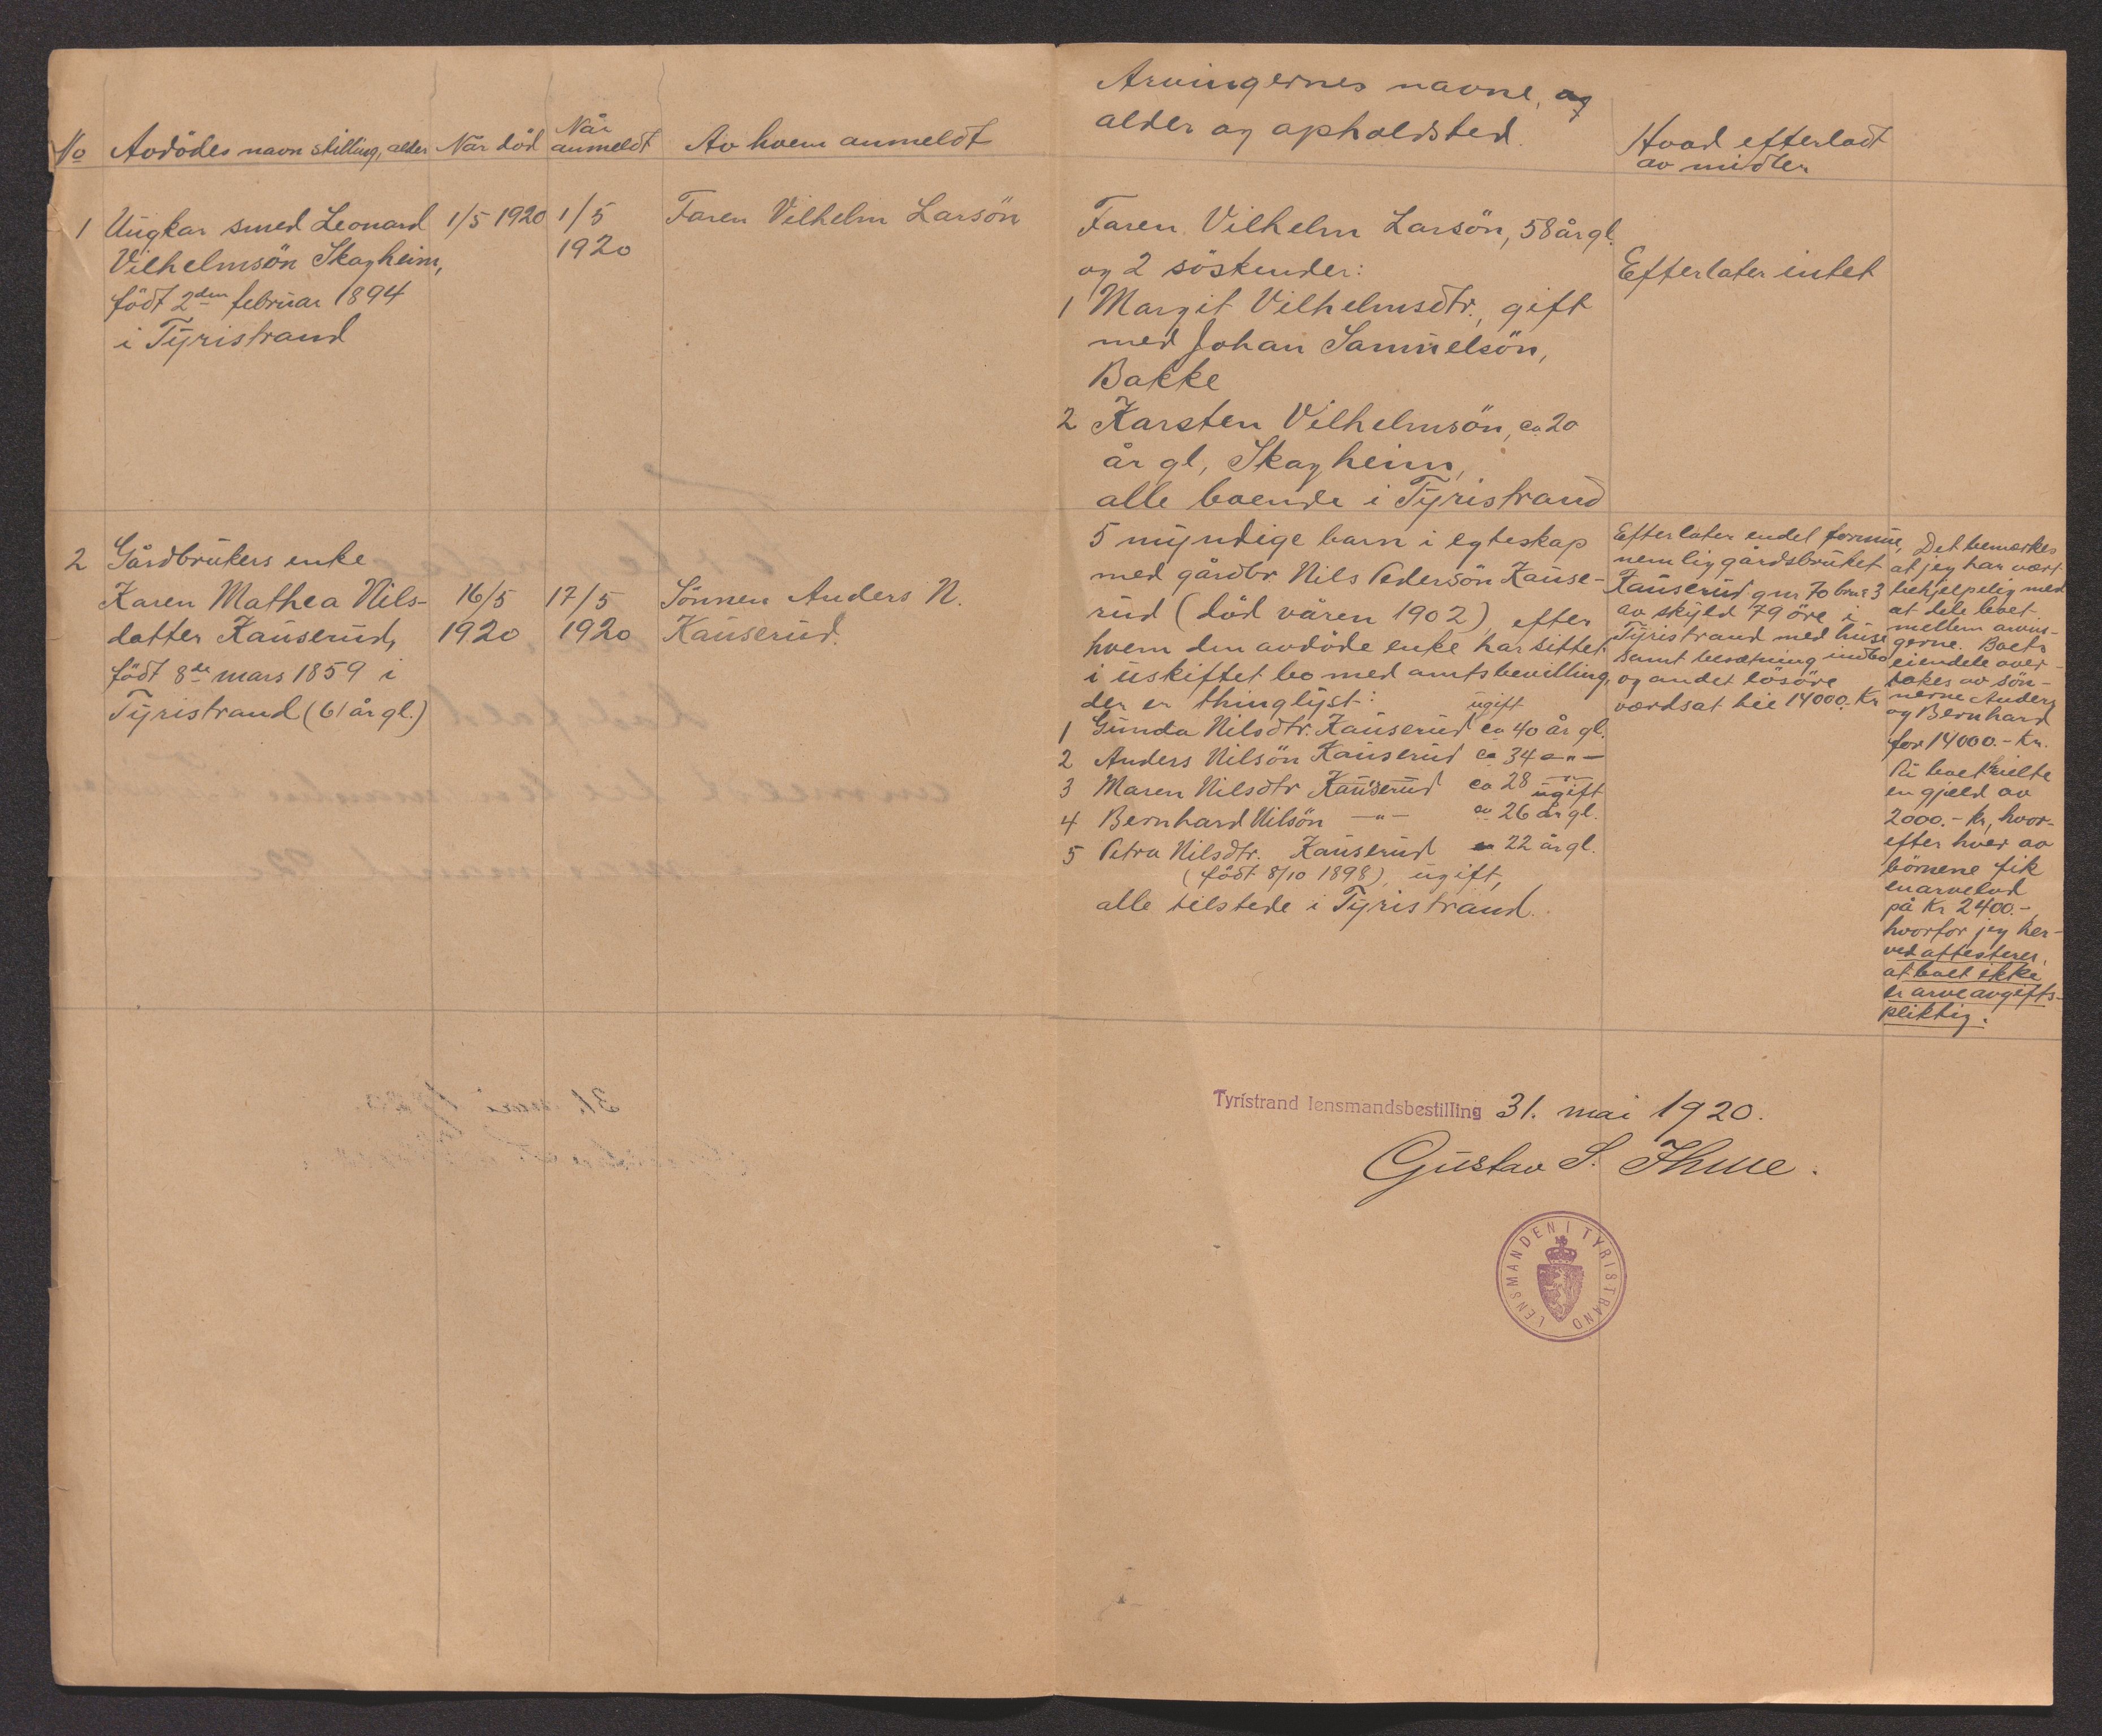 No
Avdødes navn stilling, alder
Når død
Når
anmeldt
Av hvem anmeldt
Arvingernes navne, og
alder og opholdsted.
Hvad efterladt
av midler
1
Ungkar smed Leonard
Vilhelmsön Skagheim,
födt 2den februar 1894
i Tyristrand
1/5 1920
1/5
1920
Faren Vilhelm Larsön
Faren Vilhelm Larsön, 58 år gl.
og 2 söskender:
1 Margit Vilhelmsdtr., gift
med Johan Samuelsön,
Bakke
2 Karsten Vilhelmsön, ca 20
år gl, Skagheim,
alle boende i Tyristrand
Efterlater intet
2
Gårdbrukers enke
Karen Mathea Nils-
datter Kauserud,
födt 8de mars 1859 i
Tyristrand (61 år gl.)
16/5
1920
17/5
1920
Sönnen Anders N.
Kauserud.
5 myndige barn i egteskap
med gårdbr Nils Pedersön Kause-
rud (död våren 1902), efter
hvem den avdöde enke har sittet
i uskiftet bo med amtsbevilling,
der er thinglyst:
1 Gunda Nilsdtr. Kauserud ugift ca 40 år gl.
2 Anders Nilsön Kauserud ca 34 -"-
3 Maren Nilsdtr Kauserud ca 28 -"- ugift
4 Bernhard Nilsön -"- ca 26 år gl.
5 Petra Nilsdtr. Kauserud 22 år gl.
(födt 8/10 1898), ugift,
alle tilstede i Tyristrand.
Efterlater endel formue,
nemlig gårdsbruket
Kauserud gnr 70 brnr 3
av skyld 79 öre i
Tyristrand med huse
samt besætning indbo
og andet lösöre
værdsat til 14000.- Kr
Det bemerkes
at jeg har vært
behjelpelig med
at dele boet
mellem arvin-
gerne. Boets
eiendele over-
takes av sön-
nerne Anders
og Bernhard
for 14000.- Kr.
På boet hvilte
en gjeld av
2000.- kr, hvor-
efter hver av
börnene fik
en arvelod
på Kr 2400.-,
hvorfor jeg her-
ved attesterer,
at boet ikke
er arveavgifts-
pliktig.
Tyristrand lensmandsbestilling 31. mai 1920.
Gustav S. Ihme.
LENSMANDEN I TYRISTRAND